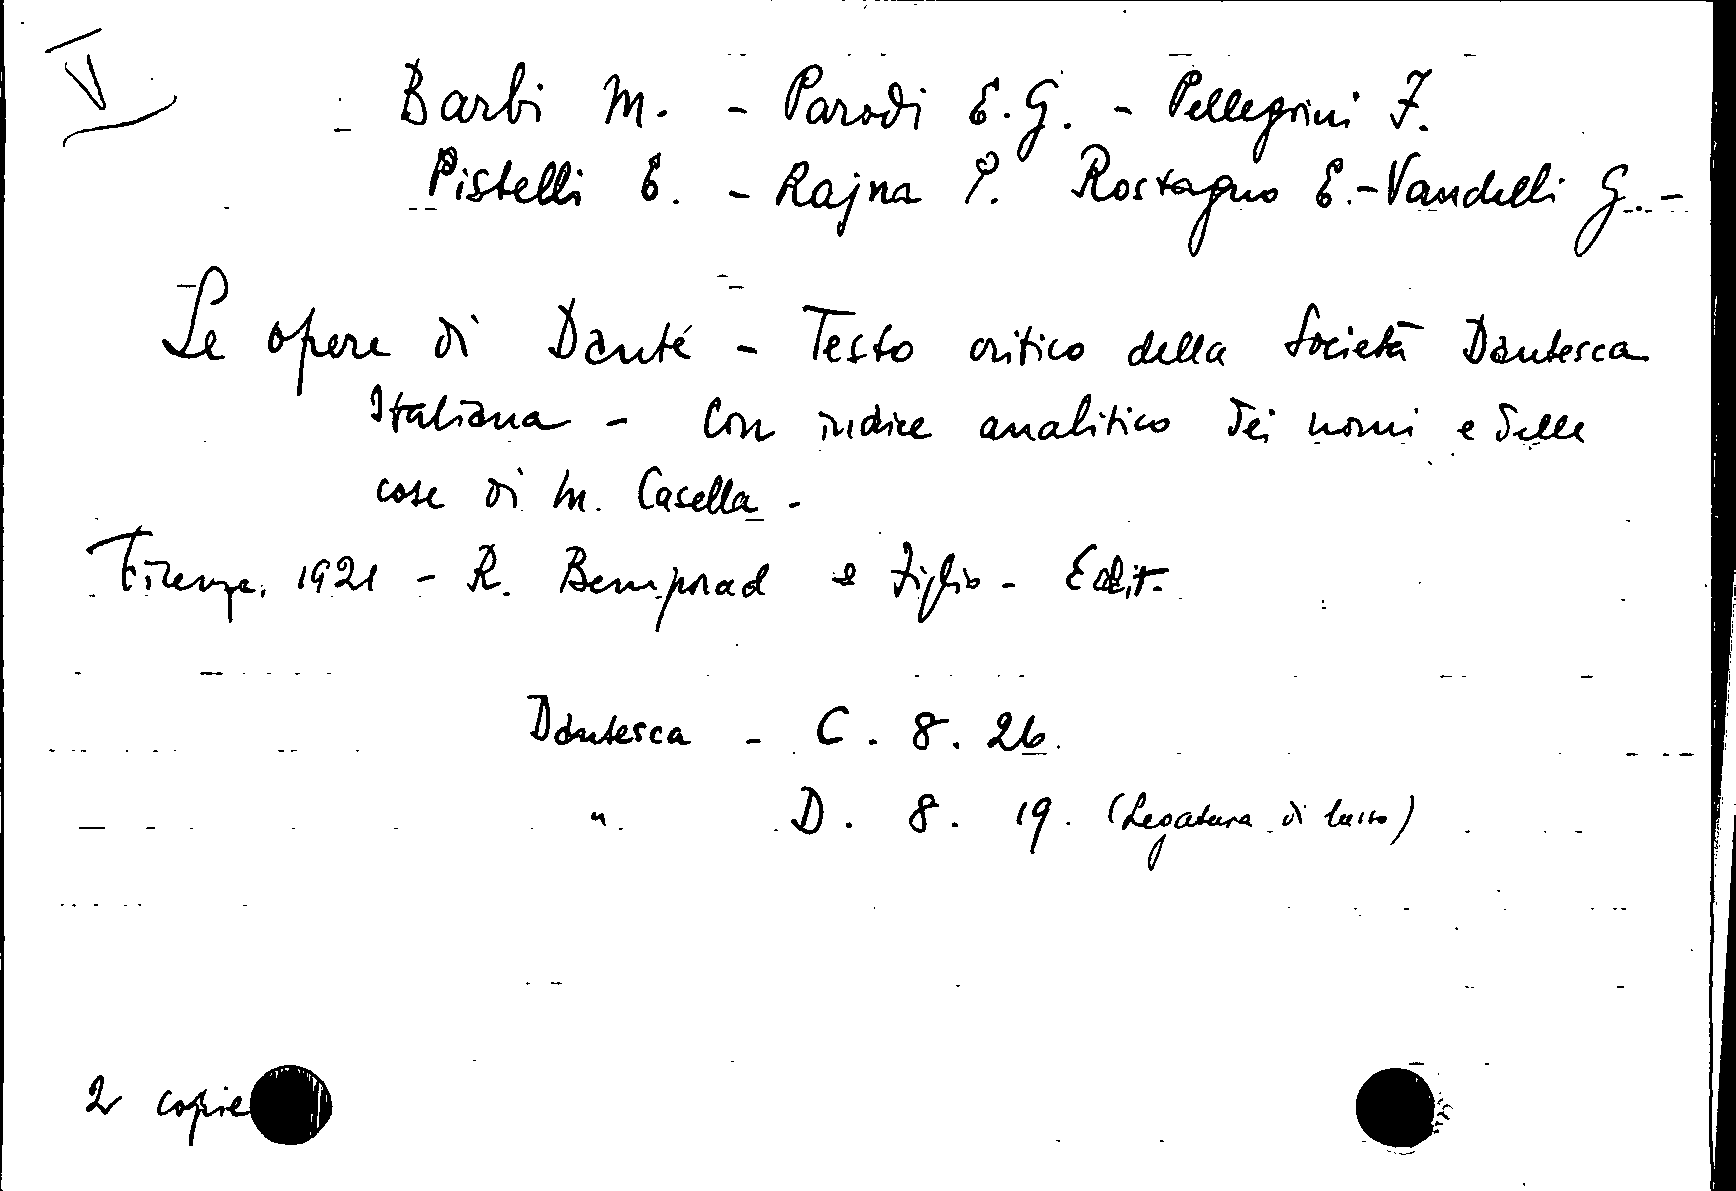 V
Barbi M. - Parodi E.G. - Pellegrini F.
Pistelli E. - Rajna P. Rostagno E.-Vandelli G. -
Le opere di Dante - Testo critico della Società Dantesca
Italiana - Con indice analitico dei nomi e delle
cose di M. Casella -
Firenze, 1921 - R. Bemporad e Figlio - Edit.
Dantesca - C. 8. 26.
" D. 8. 19. (Legatura di lusso)
2 copie